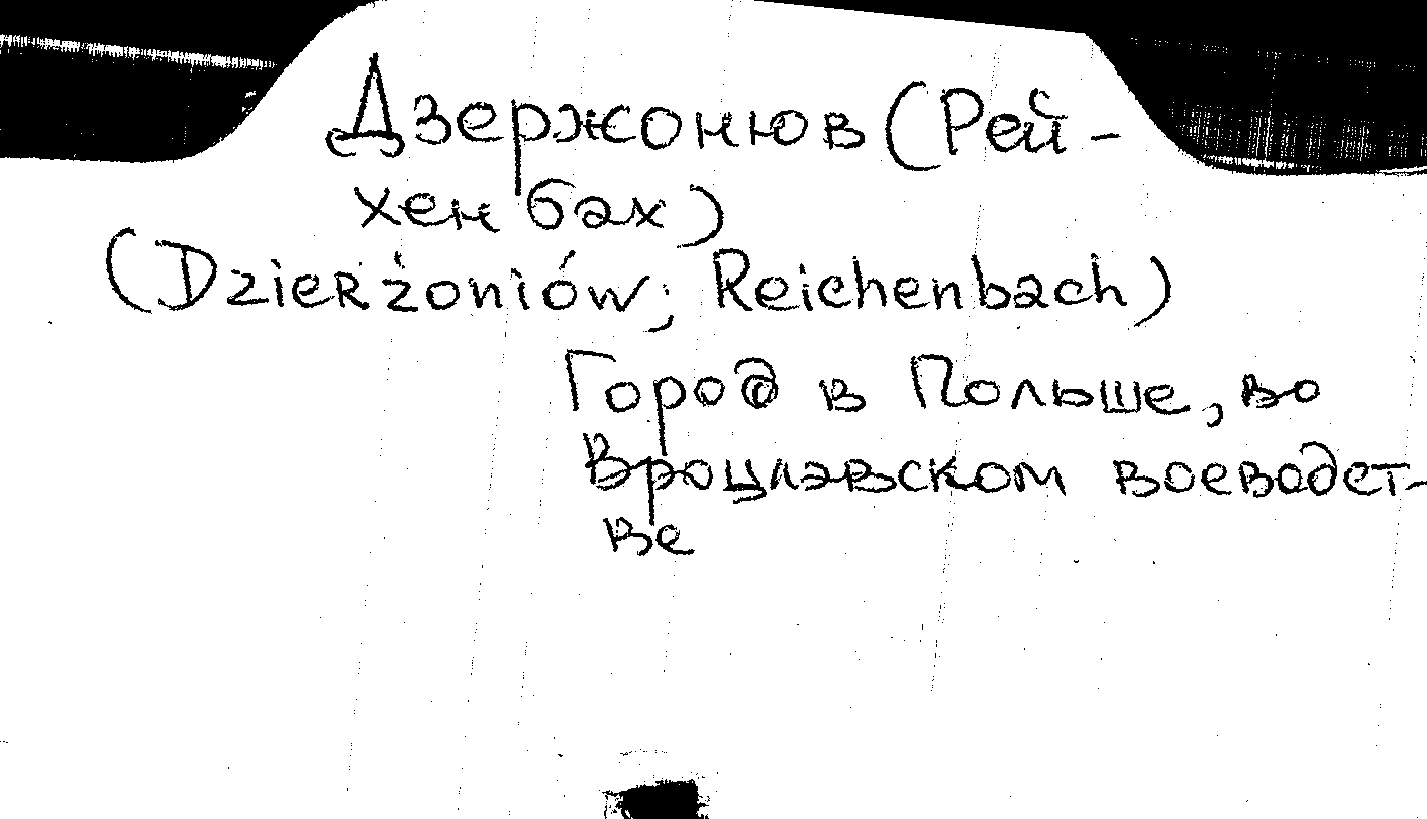 Дзержонюв (Рей-
хенбах)
(Dzierżoniów; Reichenbach)
Город в Польше, во
Вроцлавском воеводст-
ве